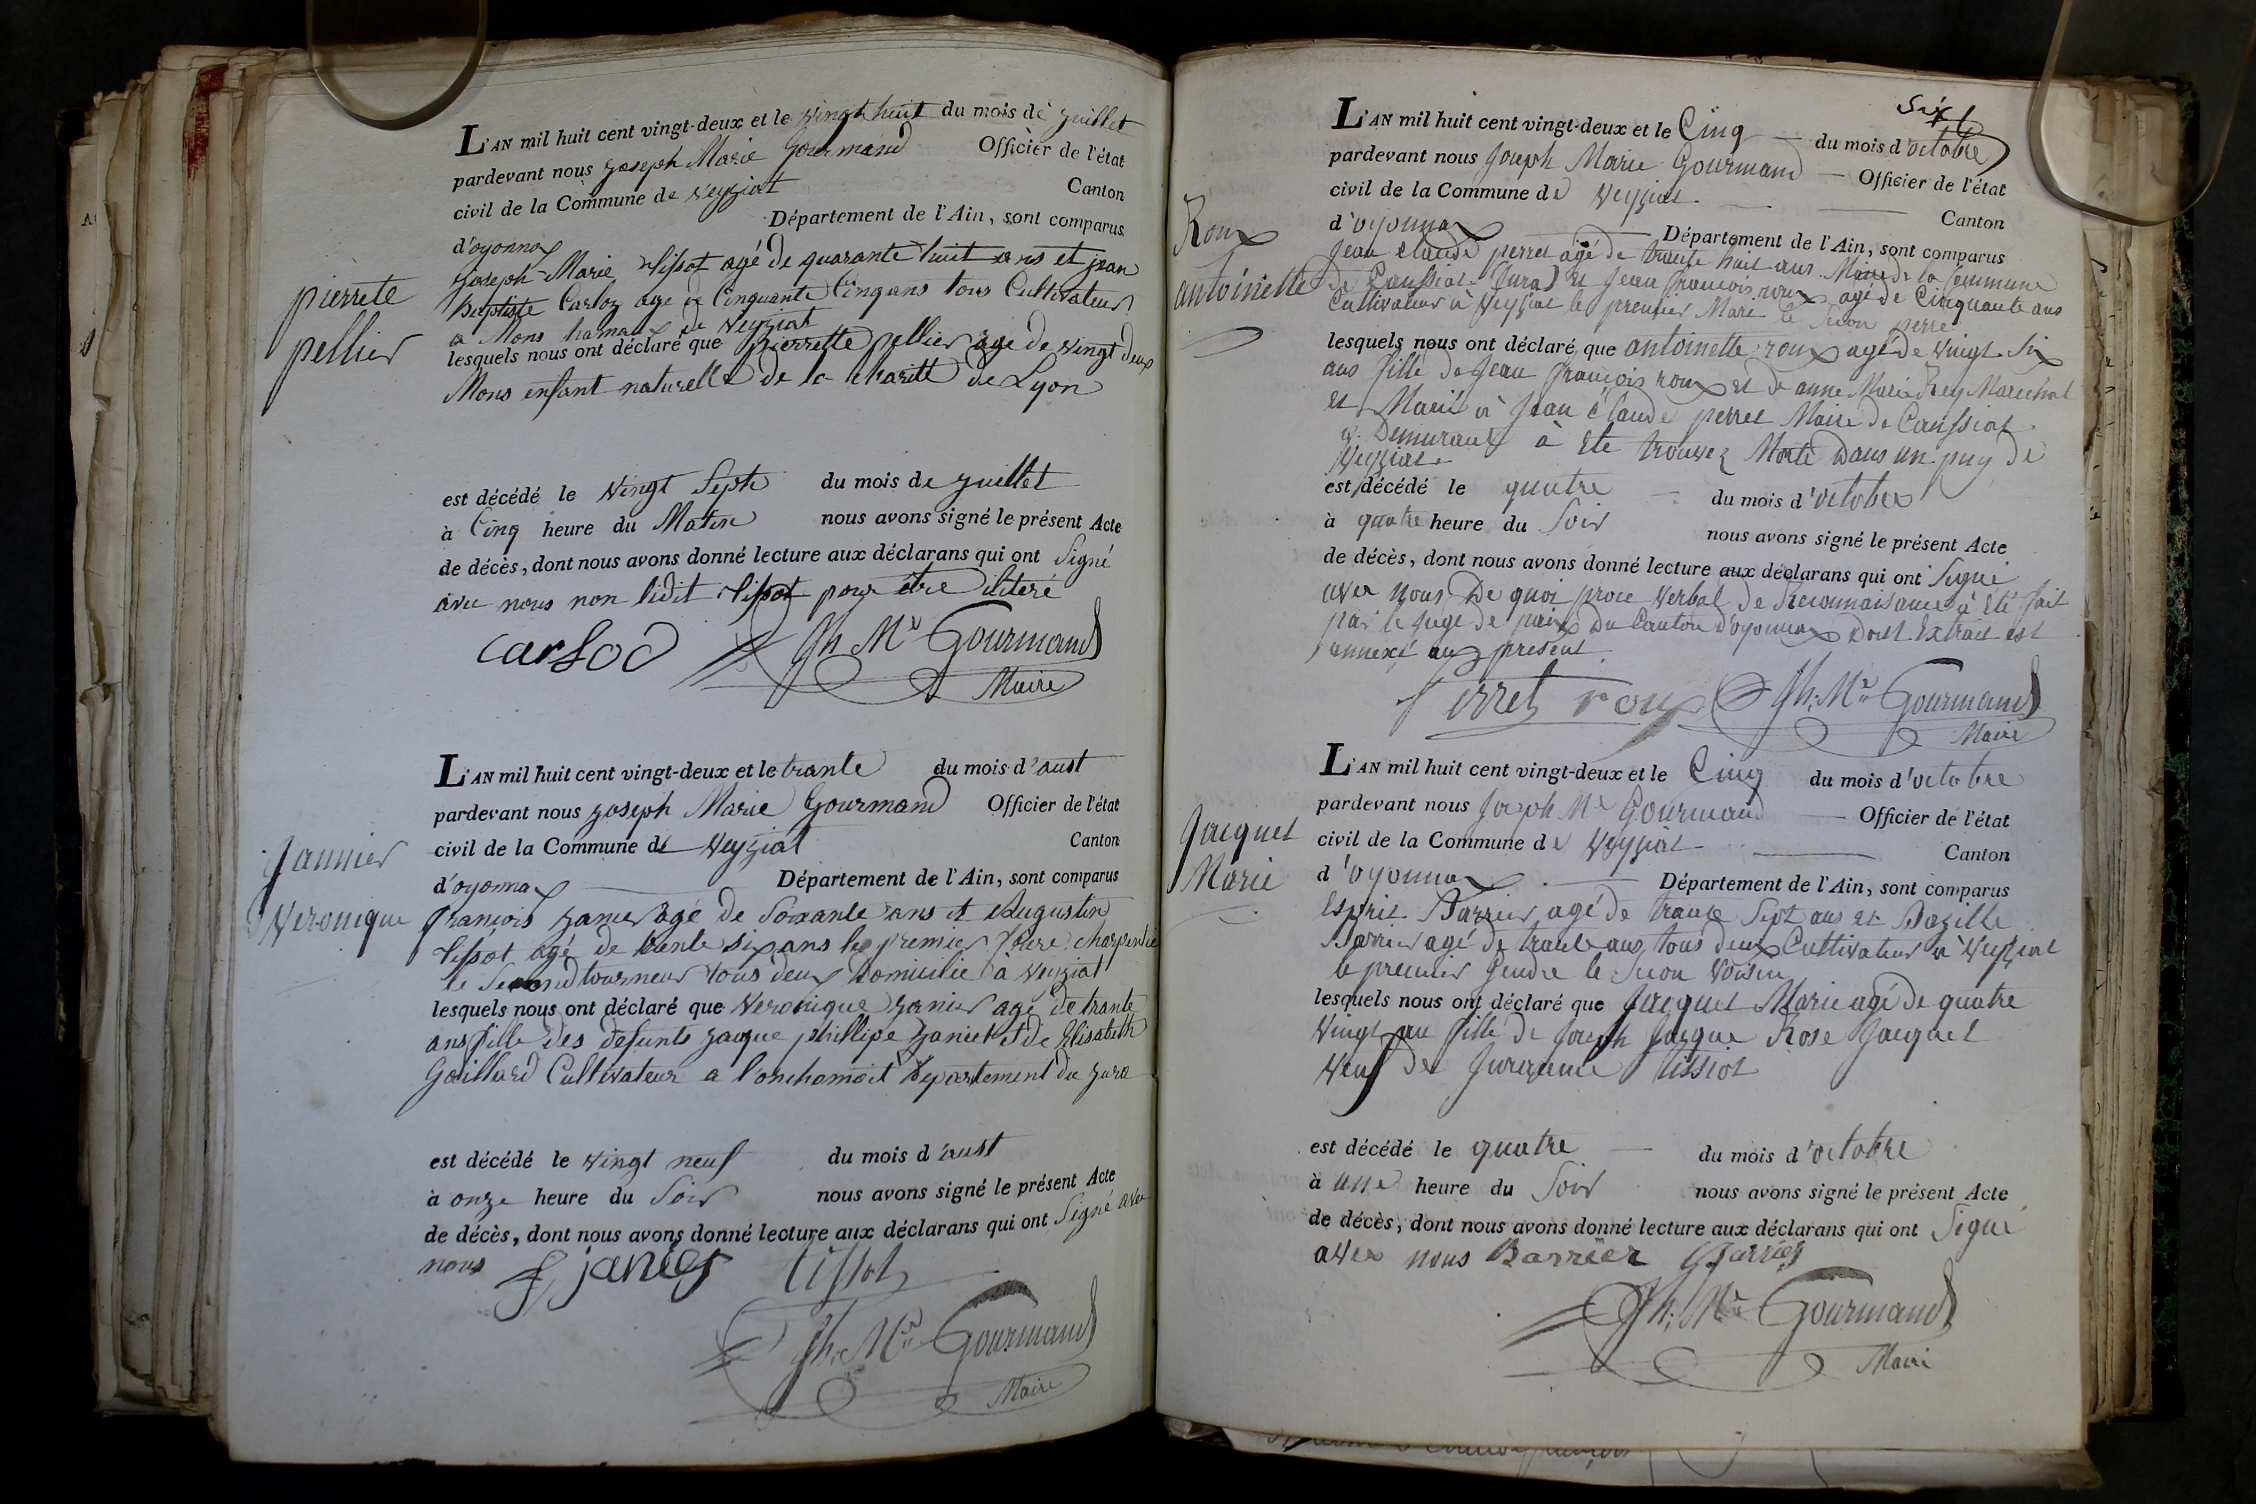 L'AN mil huit cent vingt-deux et le vingt huit du mois de juillet
pardevant nous joseph Marie Gourmand Officier de l'état
civil de la Commune de veyziat Canton
d'oyonnax Département de l'Ain, sont comparus
joseph-Marie tissot agé de quarante huit ans et jean
Baptiste Carloz age de Cinquante Cinq ans tous Cultivateur
a Mons hamaux de veyziat
pierrete
pellier
lesquels nous ont déclaré que pierrette pellier age de vingt deux
Mons enfant naturelle de la charitte de Lyon
est décédé le vingt Septe du mois de juillet
à Cinq heure du Matin nous avons signé le présent Acte
de décès, dont nous avons donné lecture aux déclarans qui ont Signé
avec nous non ledit tissot pour être iliteré
carloD Jh Me Gourmand
Maire
L'AN mil huit cent vingt-deux et le trante du mois d'aust
pardevant nous joseph Marie Gourmand Officier de l'état
civil de la Commune de veyziat Canton
d'oyonnax Département de l'Ain, sont comparus
Jannier
Veronique
françois janier agé de Soixante ans et Augustin
tissot agé de trente six ans le premier frere charpentie
le Second tourneur tous deux Domicilié à veyziat
lesquels nous ont déclaré que veronique janier agé de trante
ans fille des defunts jacque phillipe janier et de Elisabeth
Gaillard Cultivateur a Lonchamoit Departement du jura
est décédé le vingt neuf du mois d'aust
à onze heure du Soir nous avons signé le présent Acte
de décès, dont nous avons donné lecture aux déclarans qui ont Signé avec
nous f janier tissot
Jh. Me Gourmand
Maire
Six
L'AN mil huit cent vingt-deux et le Cinq du mois d'octobre
pardevant nous Joseph Marie Gourmand Officier de l'état
civil de la Commune de Veyziat Canton
d'oyonnax Département de l'Ain, sont comparus
Roux
antoinette
Jean Claude perret agé de trante huit ans Maire de la Commune
de Caussiat (Jura) et Jean françois roux agé de Cinquante ans
Cultivateur à Veyziat le premier Mari le Secon perre
lesquels nous ont déclaré que antoinette roux agé de Vingt-Six
ans fille de Jean françois roux et de anne Marie Rey Marechal
et Marié à Jean Claude perret Maire de Caussiat
& Demurant à Eté trouvez Morte Dans un puy de
Veyziat
est décédé le quatre du mois d'octobre
à quatre heure du Soir nous avons signé le présent Acte
de décès, dont nous avons donné lecture aux déclarans qui ont Signé
avec nous De quoi proce verbal de Reconnaisance à Eté fait
par le juge de paix Du Canton D'oyonnax Dont Extrait est
annexé aux présent
Perret roux Jh. Me Gourmand
Maire
L'AN mil huit cent vingt-deux et le Cinq du mois d'octobre
pardevant nous Joseph Me Gourmand Officier de l'état
civil de la Commune de Veyziat Canton
d'oyonnax Département de l'Ain, sont comparus
Jacquet
Marie
Esprit Barrier agé de trante Sept ans et Bazille
Barrier agé de trante ans tous deux Cultivateur à Veyziat
le premier Gendre le Secon Voisin
lesquels nous ont déclaré que Jacquet Marie agé de quatre
Vingt an fille de Joseph Jacque Rose Jacquet
Veuf De tissiot
est décédé le quatre du mois d'octobre
à une heure du Soir nous avons signé le présent Acte
de décès, dont nous avons donné lecture aux déclarans qui ont Signé
avec nous Barrier Barrier
Jh. Me Gourmand
Maire